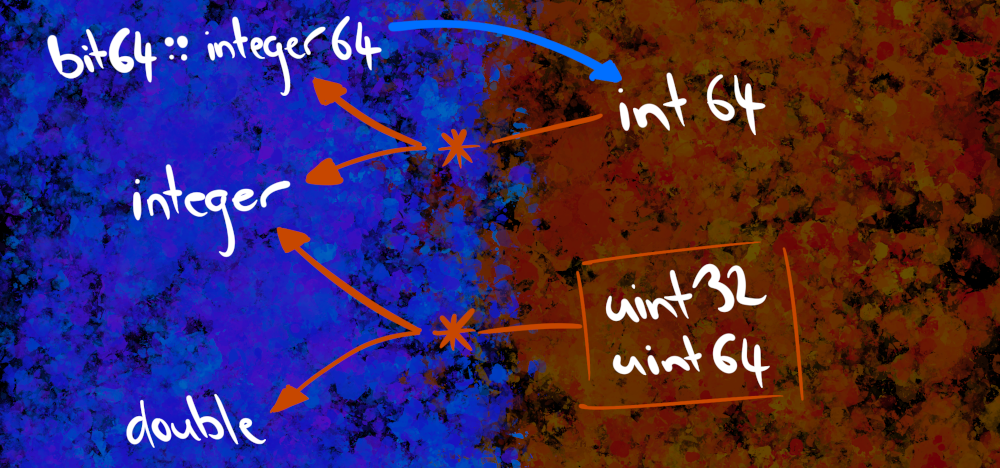 bit64:: integer64
int 64
integer
uint32
uint64
double